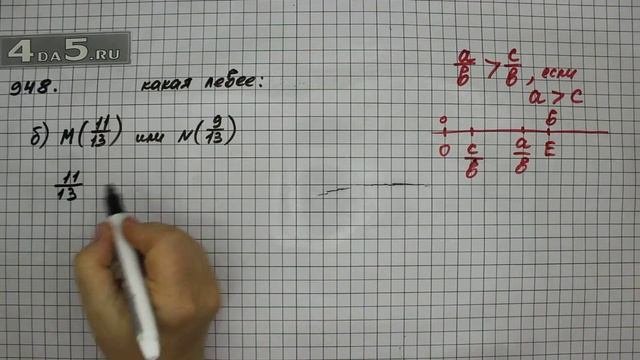 4DA5.RU
948. какая левее:
б) M(11/13) или N(9/13)
11/13
a/b > c/b, если
a > c
0 б
O c/b a/b E